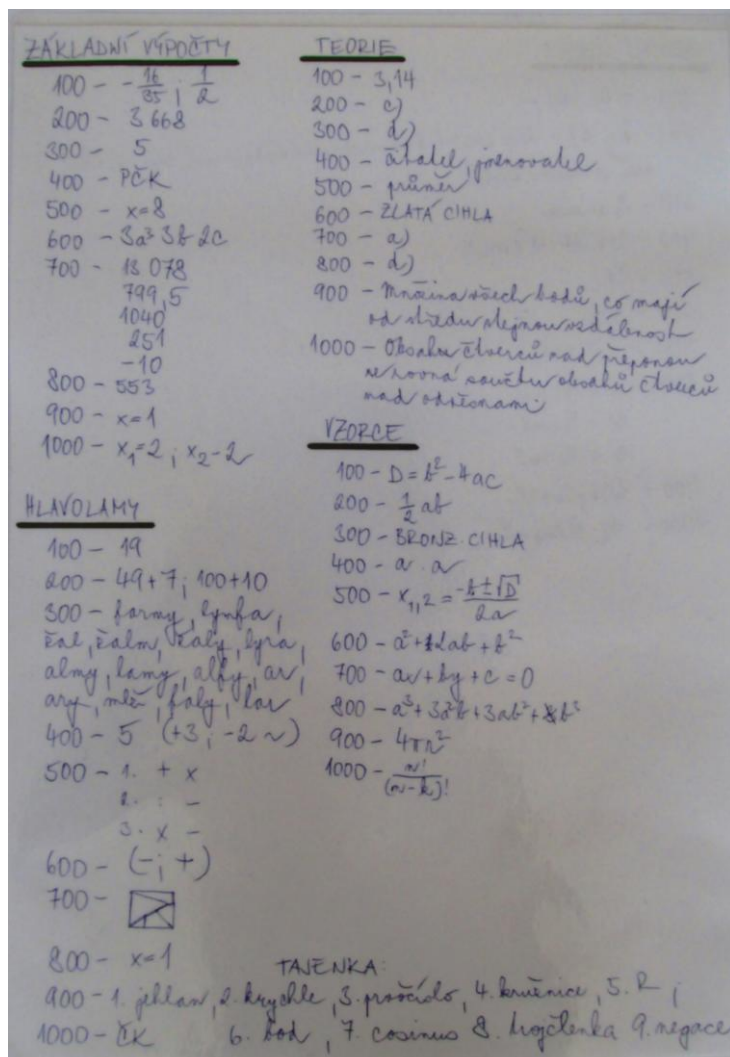 ZÁKLADNÍ VÝPOČTY
100 - -16/35 ; 1/2
200 - 3 668
300 - 5
400 - PČK
500 - x=8
600 - 3a³ 3b 2c
700 - 13 078
799,5
1040
251
-10
800 - 553
900 - x=1
1000 - x₁=2 ; x₂-2
HLAVOLAMY
100 - 19
200 - 49+7 ; 100+10
300 - farmy, lymfa,
žal, žalm, žaly, lyra,
almy, lamy, alfy, ar,
ary, mlž, faly,
400 - 5 (+3 ; -2 ~)
500 - 1. + x
2. : -
3. x -
600 - (- ; +)
700 -
800 - x=1
900 - 1. jehlan, 2. krychle, 3. pravítko, 4. kružnice, 5. R ;
1000 - ČK
TEORIE
100 - 3,14
200 - c)
300 - d)
400 - čitatel, jmenovatel
500 - průměr
600 - ZLATÁ CIHLA
700 - a)
800 - d)
900 - Množina všech bodů, co mají
od středu stejnou vzdálenost
1000 - Obsah čtverců nad přeponou
se rovná součtu obsahů čtverců
nad odvěsnami
VZORCE
100 - D = b² - 4ac
200 - 1/2 ab
300 - BRONZ. CIHLA
400 - a . a
500 - x₁,₂ = -b±√D / 2a
600 - a² + 2ab + b²
700 - ax + by + c = 0
800 - a³ + 3a²b + 3ab² + b³
900 - 4πr²
1000 - n! / (n-k)!
TAJENKA:
6. bod, 7. cosinus 8. trojčlenka 9. negace